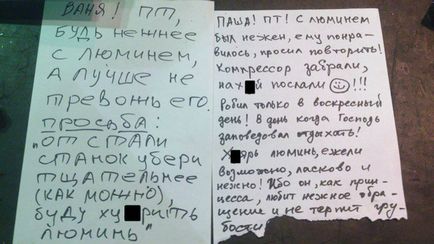 ВАНЯ! ПТ,
БУДЬ НЕЖНЕЕ
С ЛЮМИНЕМ,
А ЛУЧШЕ НЕ
ТРЕВОЖЬ ЕГО.
ПРОСЬБА:
"ОТ СТАЛИ
СТАНОК УБЕРИ
ТЩАТЕЛЬНЕЕ
(КАК МОЖНО),
БУДУ ХУ РИТЬ
ЛЮМИНЬ"
ПАША! ПТ! С ЛЮМИНЕМ
БЫЛ НЕЖЕН, ЕМУ ПОНРА-
ВИЛОСЬ, ПРОСИЛ ПОВТОРИТЬ!
Компрессор забрали,
нах й послали !!!
Робил только в воскресный
день! В день когда Господь
заповедовал отдыхать!
Х рь люминь, ежели
возможно, ласково и
нежно! Ибо он, как прин-
цесса, любит нежное обра-
щение и не терпит гру-
бости